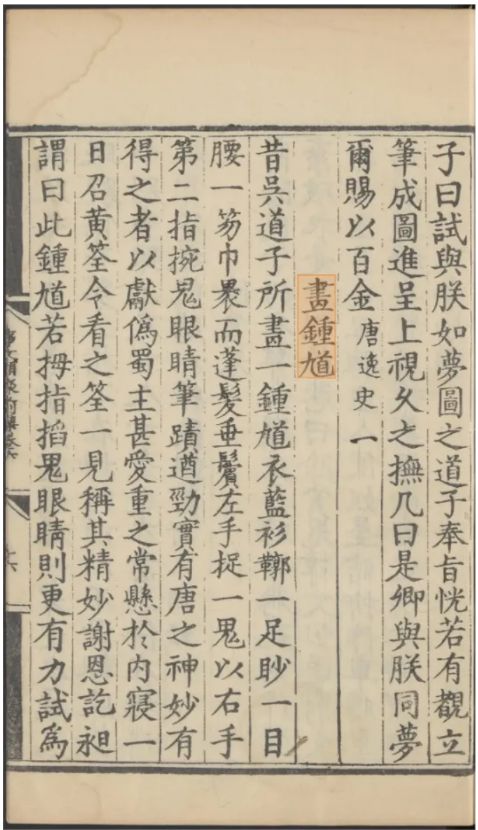 子曰試與朕如夢圖之道子奉旨恍若有覩立
筆成圖進呈上視久之撫几曰是卿與朕同夢
爾賜以百金唐逸史一
畫鍾馗
昔吳道子所畫一鍾馗衣藍衫鞹一足眇一目
腰一笏巾裹而蓬髮垂鬢左手捉一鬼以右手
第二指捥鬼眼睛筆蹟遒勁實有唐之神妙有
得之者以獻僞蜀主甚愛重之常懸於内寢一
日召黄筌令看之筌一見稱其精妙謝恩訖昶
謂曰此鍾馗若拇指搯鬼眼睛則更有力試爲